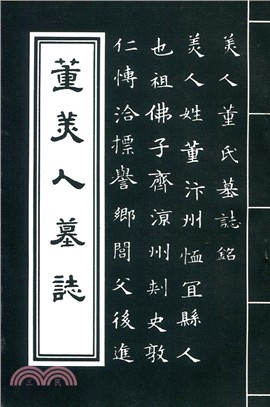 美人董氏墓誌銘
美人姓董汴州恤宜縣人
也祖佛子齊涼州刺史敦
仁博洽摽譽鄉閭父後進
董美人墓誌
三民